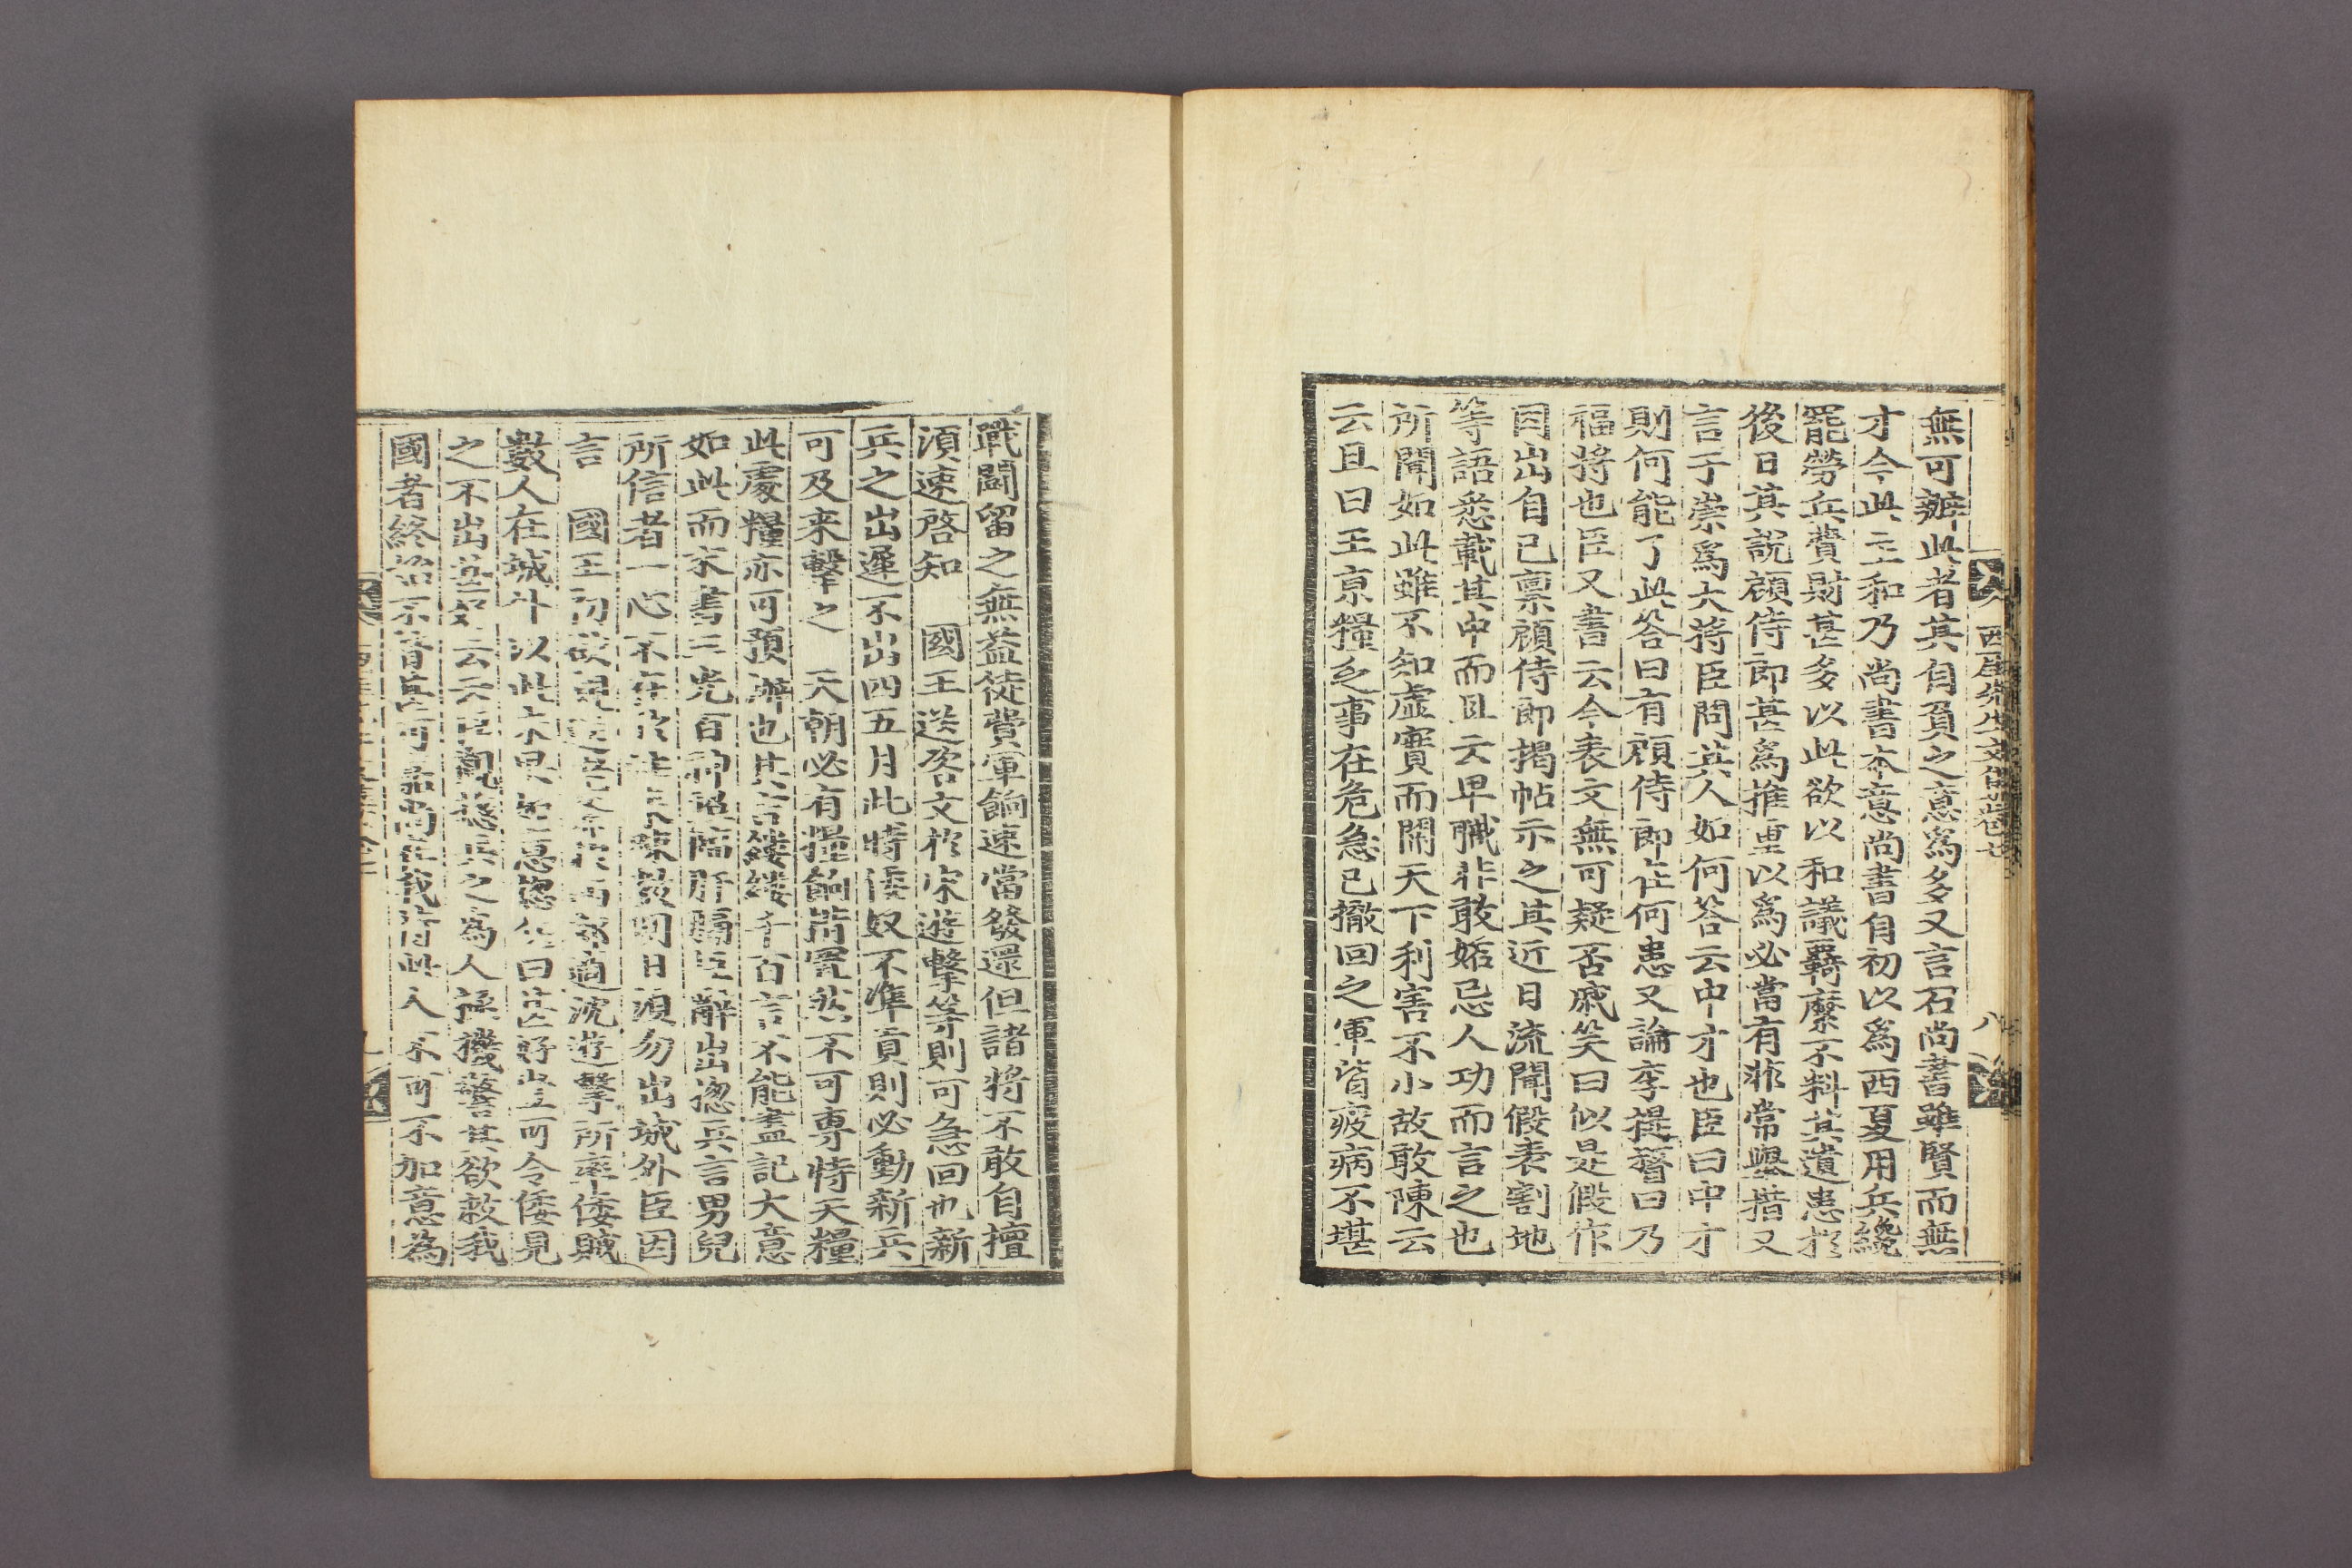 西厓先生文集卷之七
八
無可辦此者其自負之意爲多又言石尚書雖賢而無
才今此主和乃尚書本意尚書自初以爲西夏用兵纔
罷勞兵費財甚多以此欲以和議羈縻不料其遺患於
後日其說顧侍郎甚爲推重以爲必當有非常舉措又
言于崇爲大將臣問其人如何答云中才也臣曰中才
則何能了此答曰有顧侍郎在何患又論李提督曰乃
福將也臣又書云今表文無可疑否戚笑曰似是假作
因出自己禀顧侍郎揭帖示之其近日流聞假表割地
等語悉載其中而且云卑職非敢妬忌人功而言之也
所聞如此雖不知虛實而關天下利害不小故敢陳云
云且曰王京糧乏事在危急已撤回之軍皆疲病不堪
戰鬪留之無益徒費軍餉速當發還但諸將不敢自擅
須速啓知 國王送咨文於宋遊擊等則可急回也新
兵之出遲不出四五月此時倭奴不準貢則必動新兵
可及来擊之 天朝必有糧餉措置然不可專恃天糧
此處糧亦可預辦也其言縷縷千百言不能盡記大意
如此而求書三光百神照臨肝膈臣辭出摠兵言男兒
所信者一心不在於 陳啓明日須勿出城外臣因
言 國王初欲 適沈遊擊所率倭賊
數人在城外以此 曰甚好豈可令倭見
之不出 云云臣觀戚兵之爲人 機警其欲救我
國者終始不 此人不可不加意爲